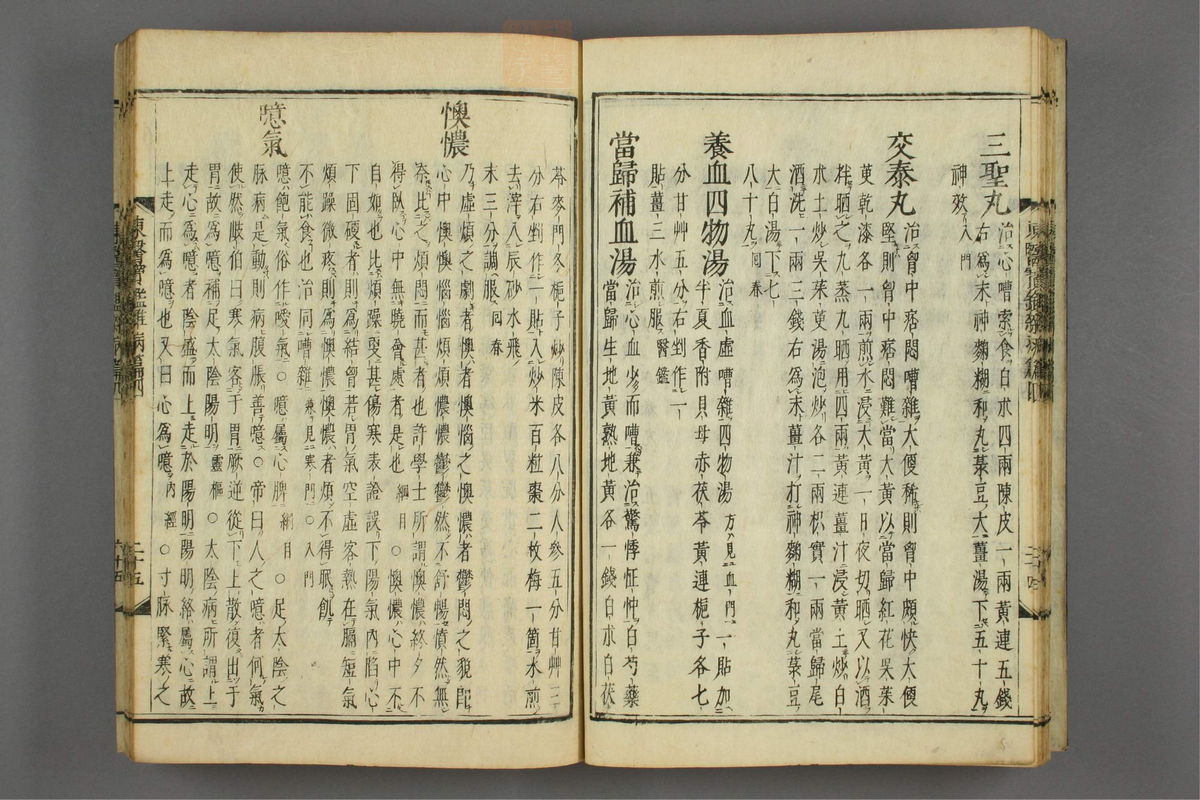 三聖丸治心嘈索食白朮四兩陳皮一兩黃連五錢
右爲末神麴糊和丸菉豆大薑湯下五十丸
神效入門
交泰丸治胷中痞悶嘈雜大便稀則胷中頗快大便
堅則胷中痞悶難當大黃以當歸紅花吳茱
萸乾漆各一兩煎水浸大黃一日夜切晒又以酒
拌晒之九蒸九晒用四兩黃連薑汁浸黃土炒白
朮土炒吳茱萸湯泡炒各二兩枳實一兩當歸尾
酒洗一兩三錢右爲末薑汁打神麴糊和丸菉豆
大白湯下七
八十丸回春
養血四物湯治血虛嘈雜四物湯方見血門一貼加
半夏香附貝母赤茯苓黃連梔子各七
分甘艸五分右剉作一
貼薑三水煎服醫鑑
當歸補血湯治心血少而嘈兼治驚悸怔忡白芍藥
當歸生地黃熟地黃各一錢白朮白茯
苓麥門冬梔子炒陳皮各八分人參五分甘艸三
分右剉作一貼入炒米百粒棗二枚梅一箇水煎
去滓入辰砂水飛
末三分調服回春
懊憹
乃虛煩之劇者懊者懊惱之懊憹者鬱悶之貌卽
心中懊懊惱惱煩煩憹憹鬱鬱然不舒暢憒憒然無
奈比之煩悶而甚者也許學士所謂懊憹終夕不
得臥心中無曉會處者是也綱目○懊憹心中不
自如也比煩躁更甚傷寒表證誤下陽氣內陷心
下固硬者則爲結胷若胃氣空虛客熱在膈短氣
煩躁微疼則爲懊憹懊憹者煩不得眠飢
不能食也治同嘈雜兼見寒門○入門
噫氣
噫飽氣俗作噯氣○噫屬心脾綱目○足太陰之
脉病是動則病腹脹善噫○帝曰人之噫者何氣
使然歧伯曰寒氣客于胃厥逆從下上散復出于
胃故爲噫補足太陰陽明靈樞○太陰病所謂上
走心爲噫者陰盛而上走於陽明陽明絡屬心故
上走而爲噫也又曰心爲噫內經○寸脉緊寒之
東醫寶鑑雜病篇四
二十五